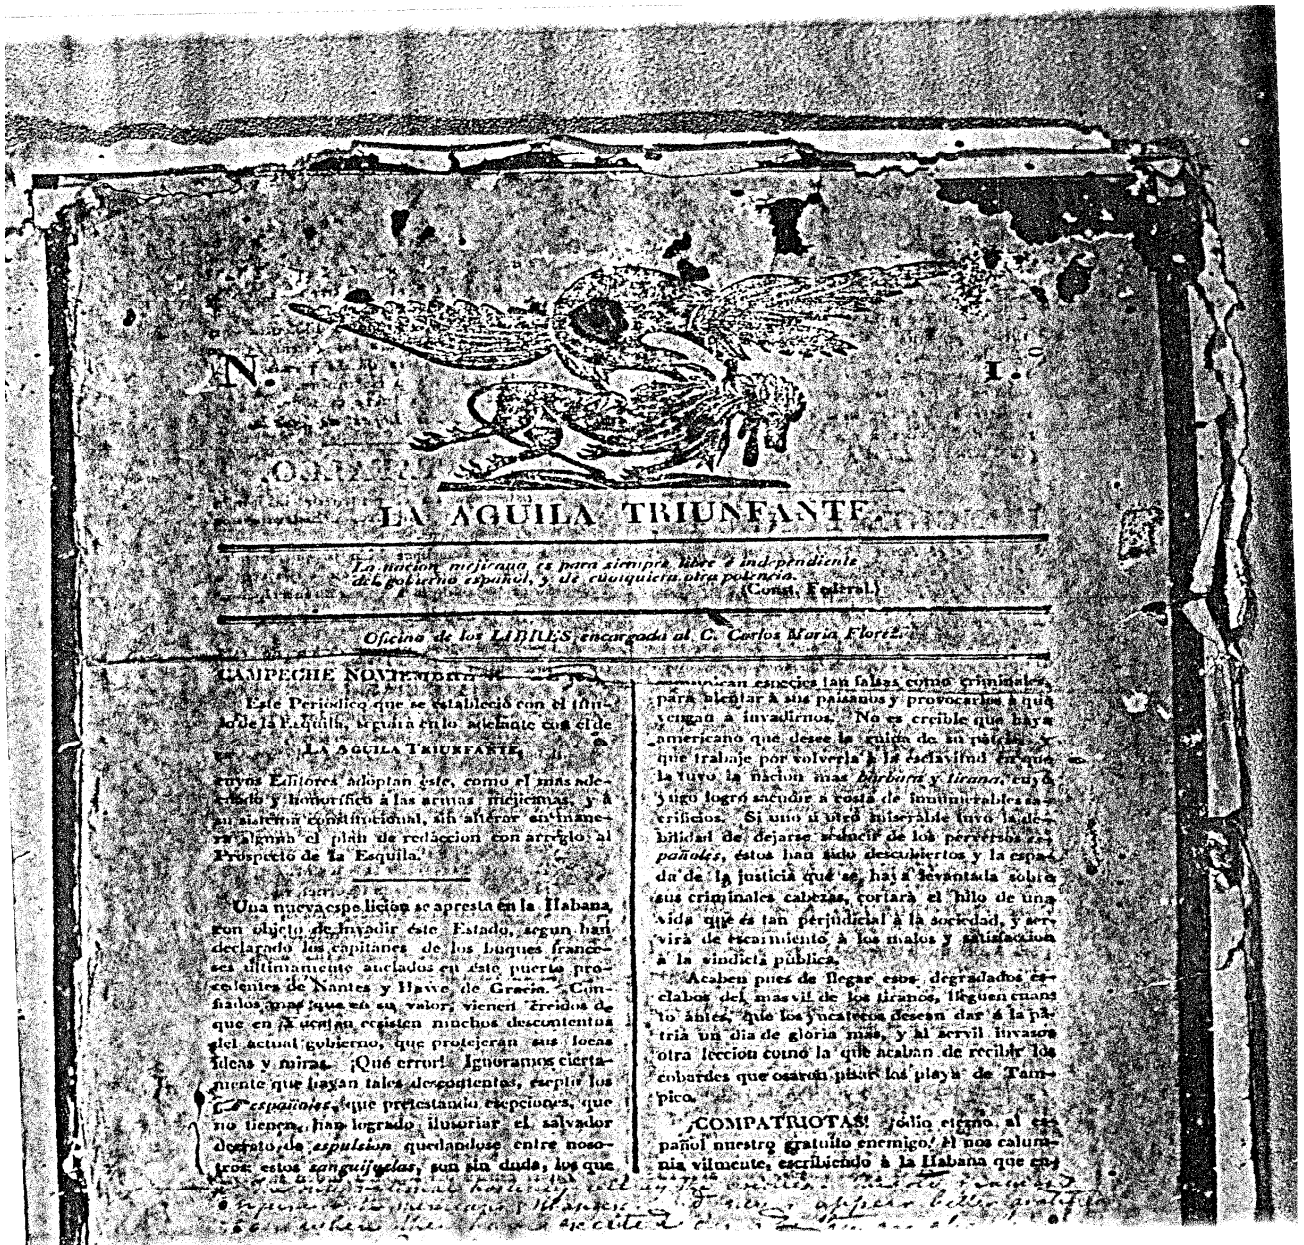 N.
1.º
LA AGUILA TRIUNFANTE.
La nacion mejicana es para siempre libre é independiente
del gobierno español, y de cualquiera otra potencia.
(Const. Federal.)
Oficina de los LIBRES, encargada al C. Carlos Maria Florez.
CAMPECHE NOVIEMBRE
Este Periodico que se estableció con el titu-
lo de la Esquila, seguirá en lo adelante con el de
LA AGUILA TRIUNFANTE,
cuyos Editores adoptan éste, como el mas ade-
cuado y honorifico á las armas mejicanas, y á
su sistema constitucional, sin alterar en mane-
ra alguna el plan de redaccion con arreglo al
Prospecto de la Esquila.
Una nueva espedicion se apresta en la Habana
con objeto de invadir éste Estado, segun han
declarado los capitanes de los buques france-
ses ultimamente anclados en éste puerto pro-
cedentes de Nantes y Havre de Gracia. Con-
fiados mas que en su valor, vienen creidos de
que en Yucatan ecsisten muchos descontentos
del actual gobierno, que protejerán sus locas
ideas y miras. ¡Qué error! Ignoramos cierta-
mente que hayan tales descontentos, escepto los
españoles, que pretestando escepciones, que
no tienen, han logrado ilusoriar el salvador
decreto de espulsion quedandose entre noso-
tros: estos sanguijuelas, son sin duda, los que
especies tan falsas como criminales,
para alentar á sus paisanos y provocarlos á que
vengan á invadirnos. No es creible que haya
americano que desee la ruida de su patria, y
que trabaje por volverla á la esclavitud en que
la tuvo la nacion mas bárbara y tirana, cuyo
yugo logró sacudir á costa de innumerables sa-
crificios. Si uno ú otro miserable tuvo la de-
bilidad de dejarse seducir de los perversos es-
pañoles, éstos han sido descubiertos y la espa-
da de la justicia que se haya levantada sobre
sus criminales cabezas, cortará el hilo de una
vida que es tan perjudicial á la sociedad, y ser-
virá de escarmiento á los malos y satisfaccion
á la vindicta pública.
Acaben pues de llegar esos degradados es-
clabos del mas vil de los tiranos, lleguen cuan
to ántes, que los yucatecos desean dar á la pa-
tria un dia de gloria mas, y al servil invasor
otra leccion como la que acaban de recibir los
cobardes que osaron pisar las playa de Tam-
pico.
¡COMPATRIOTAS! ¡ódio eterno al es-
pañol nuestro gratuito enemigo! él nos calum-
nia vilmente, escribiendo á la Habana que en-